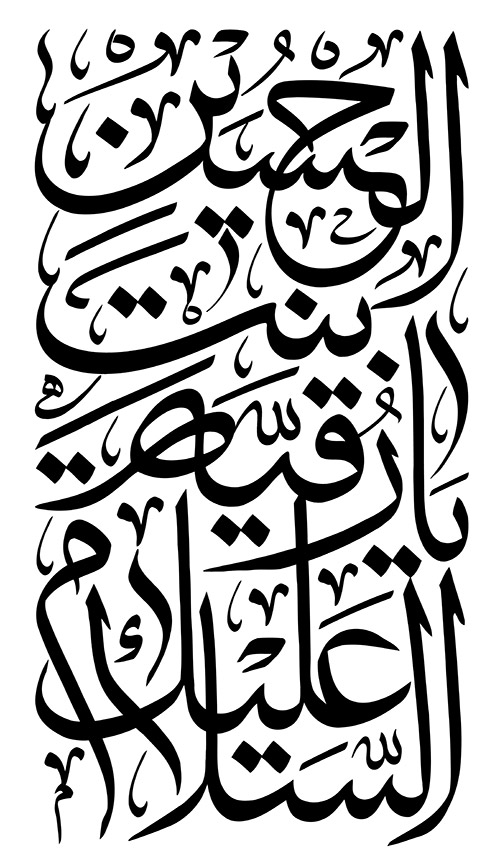 السلام عليك
يا رقية
بنت
الحسين